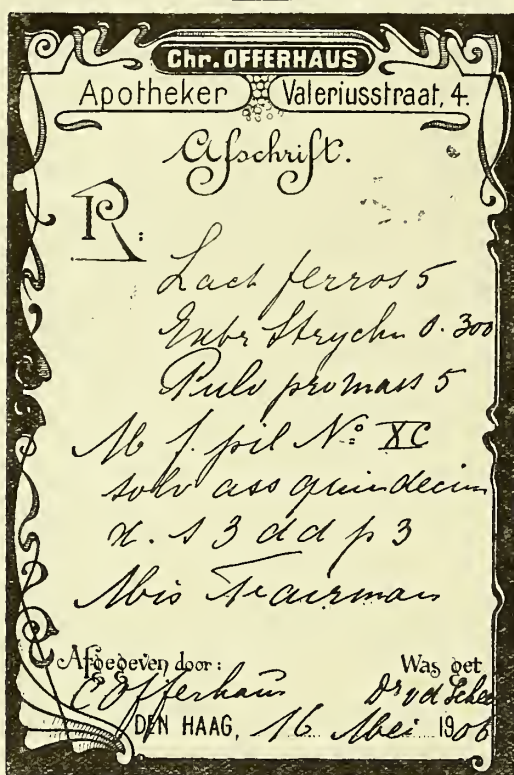 Chr. OFFERHAUS
Apotheker Valeriusstraat, 4.
Afschrift.
R:
Lact ferros 5
Extr Strychn 0.300
Pulv pro mass 5
M f. pil No XC
solv ass quindecim
d. s 3 d d p 3
Afgegeven door: Was get
C Offerhaus Dr v d
DEN HAAG, 16 Mei 1906